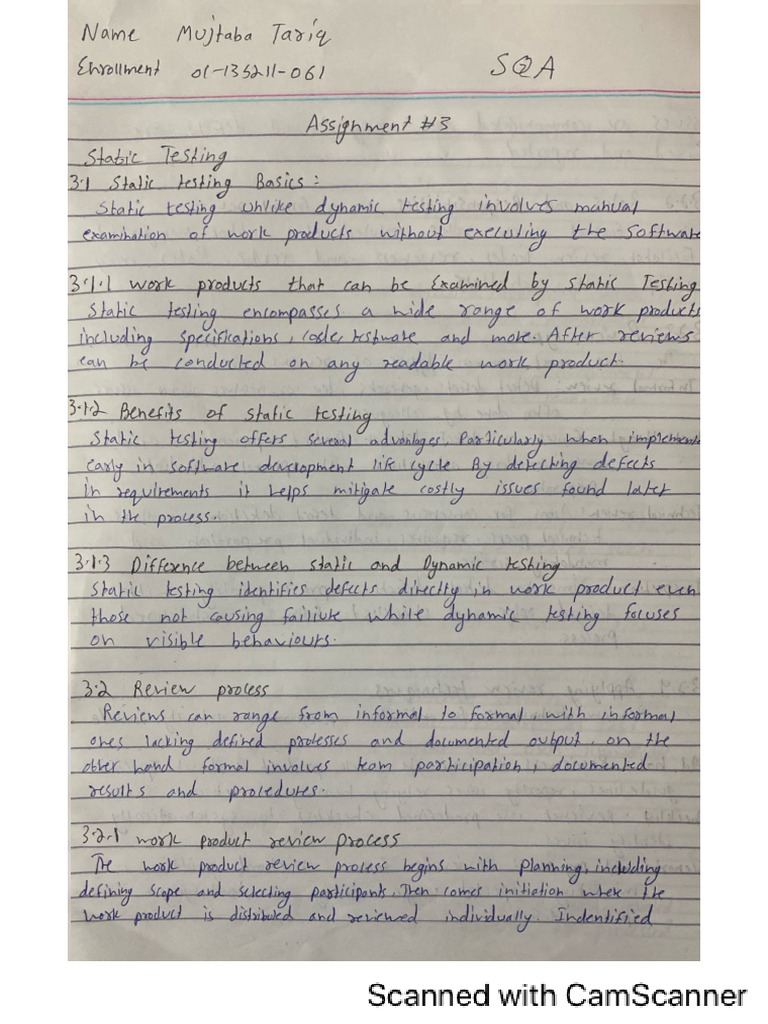 Name Mujtaba Tariq
Enrollment 01-135211-061 SQA
Assignment #3
Static Testing
3.1 Static testing Basics:
Static testing unlike dynamic testing involves manual
examination of work products without executing the software
3.1.1 work products that can be Examined by static Testing
Static testing encompasses a wide range of work products
including specifications, code, testware and more. After reviews
can be conducted on any readable work product.
3.1.2 Benefits of static testing
Static testing offers several advantages, Particularly when implemente
early in software development life cycle By detecting defects
in requirements it helps mitigate costly issues found later
in the process.
3.1.3 Difference between static and Dynamic testing
Static testing identifies defects directly in work product even
those not causing failiure while dynamic testing focuses
on visible behaviours.
3.2 Review process
Reviews can range from informal to formal, with informal
ones lacking defined processes and documented output, on the
other hand formal involves team participation, documented
results and procedures.
3.2.1 work product review process
The work product review process begins with planning, including
defining scope and selecting participants. Then comes initiation where the
work product is distributed and reviewed individually. Indentified
Scanned with CamScanner